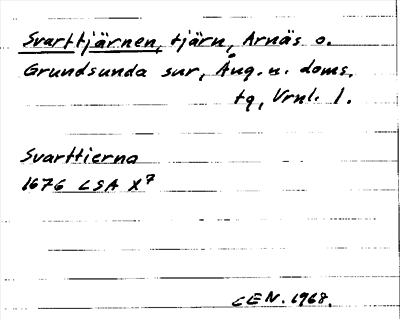 Svarttjärnen, tjärn, Arnäs o.
Grundsunda sur, Ång. n. doms.
tg, Vrnl. 1.
Svarttierna
1676 LSA X7
CEN. 1968.